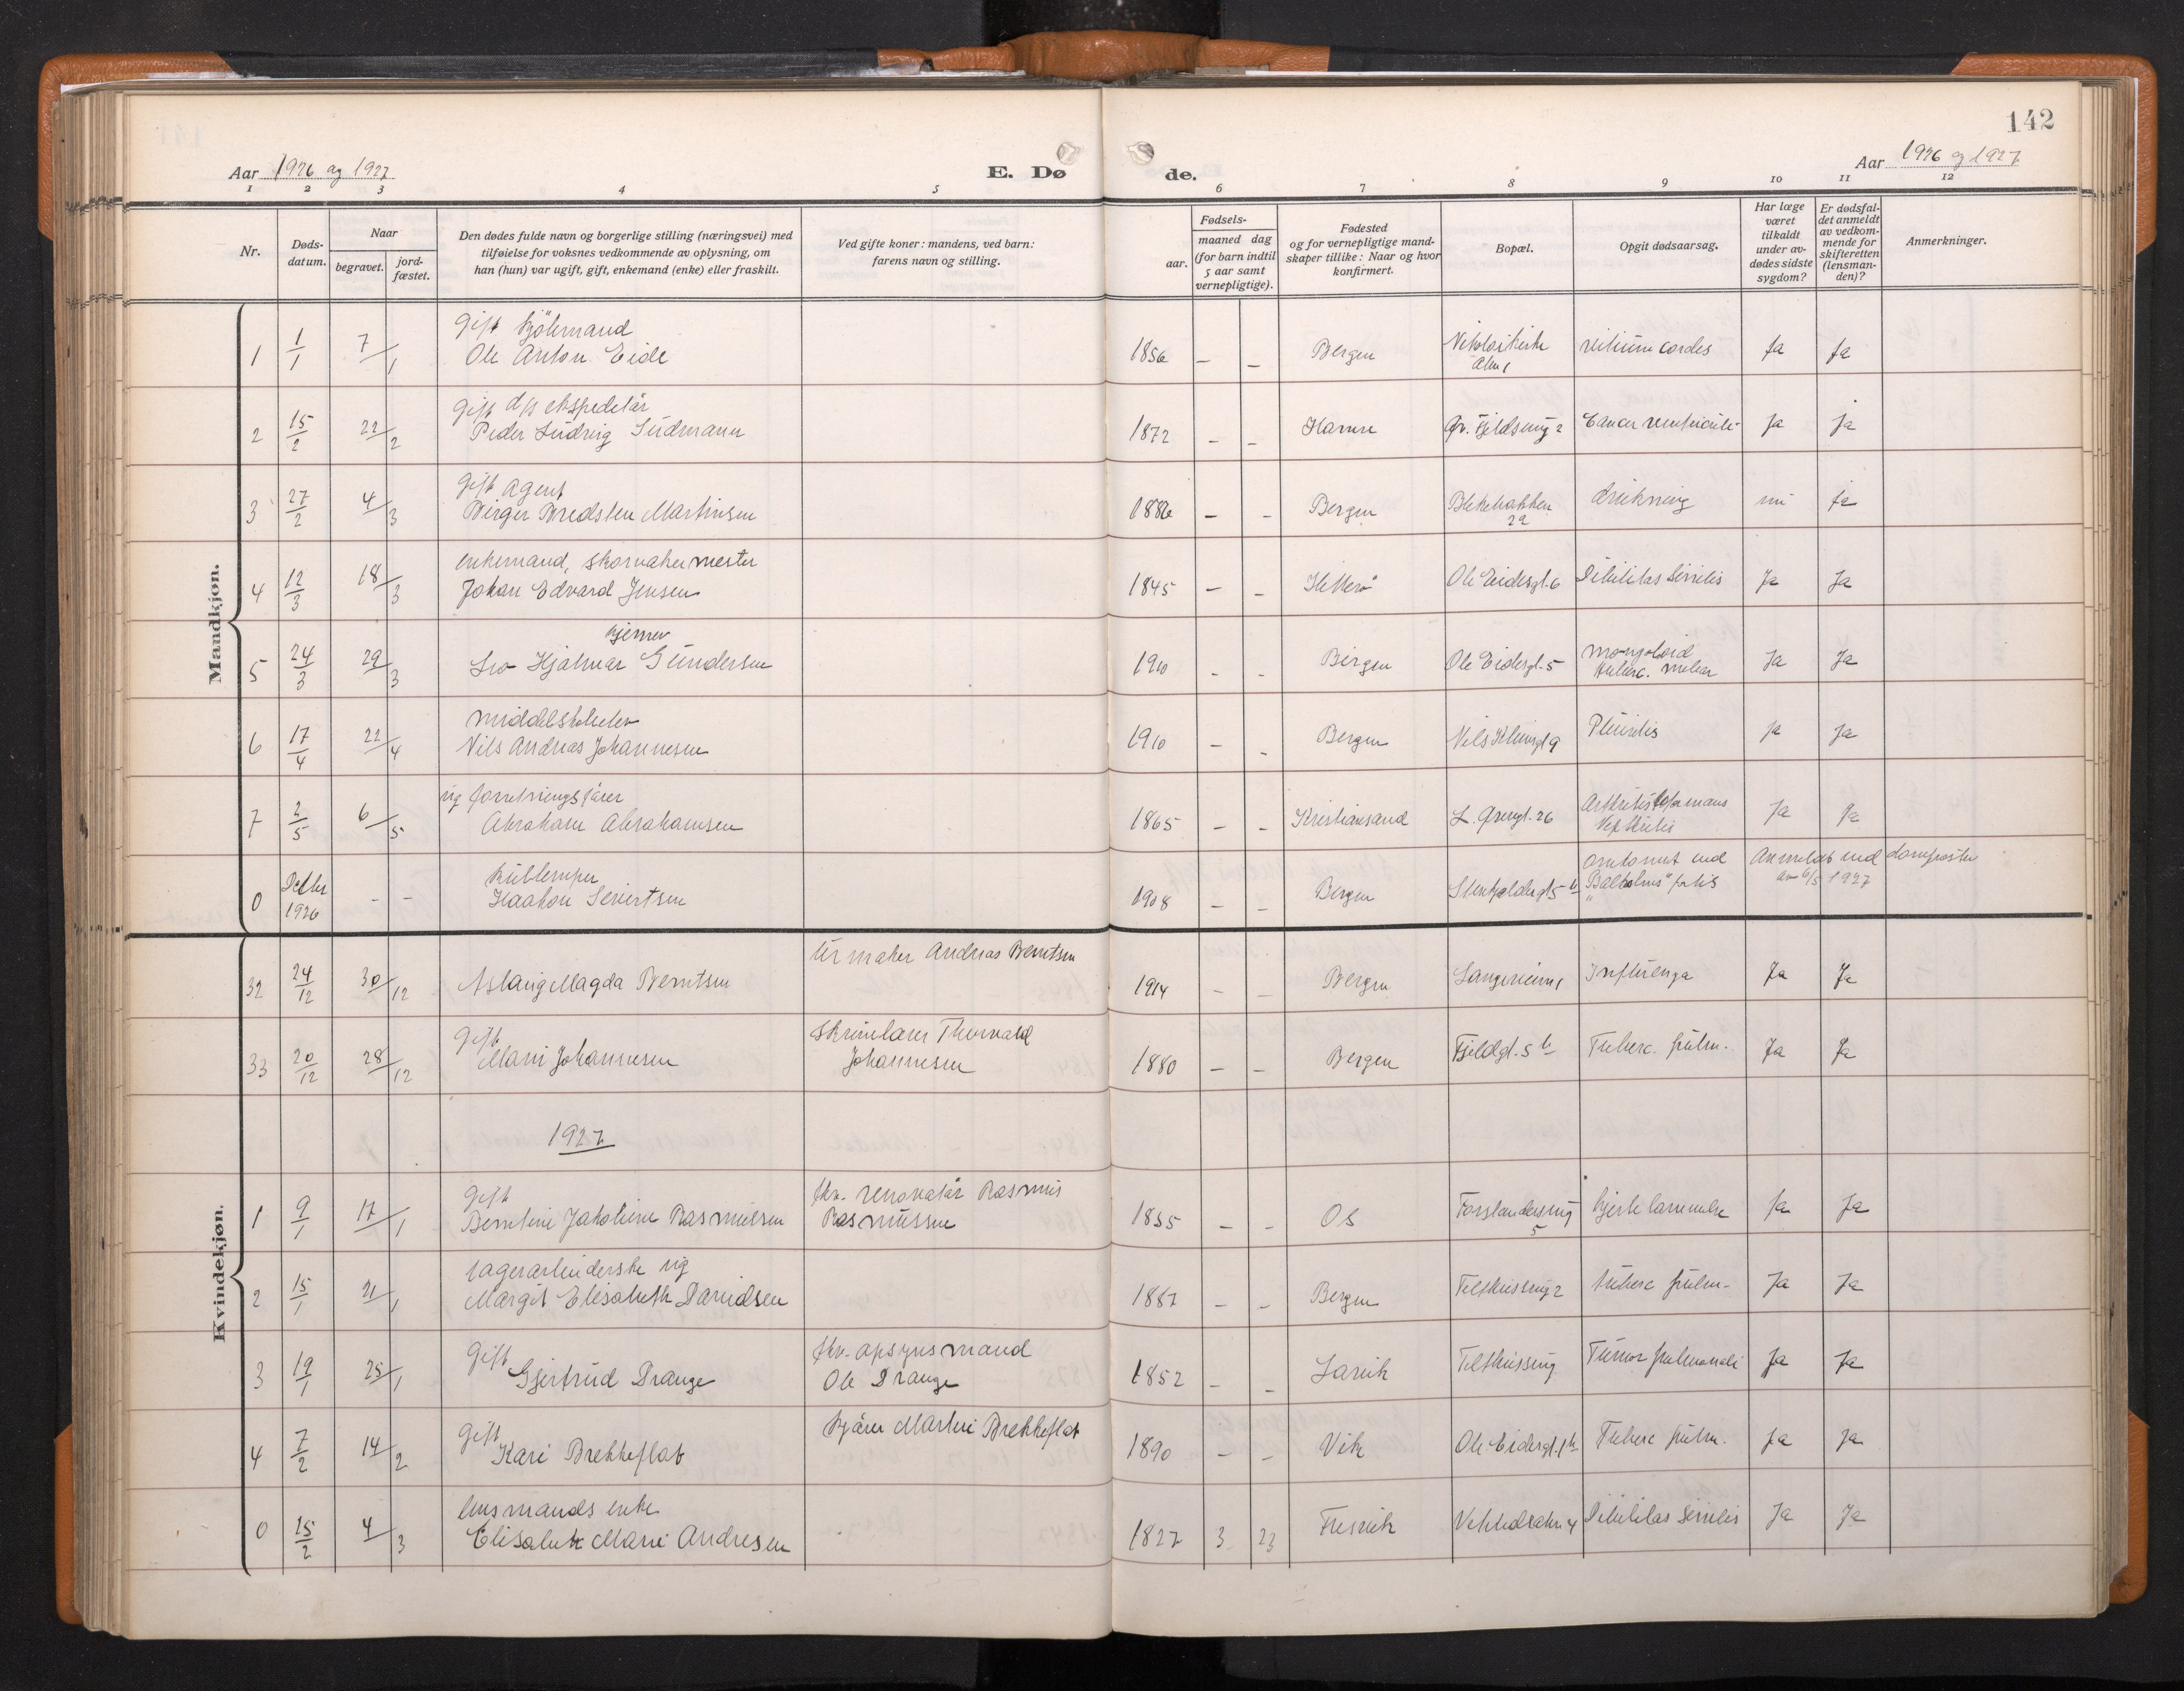 142
Aar 1926 og 1927
E. Dø
de.
Aar 1926 og 1927
1 2 3 4 5 6 7 8 9 10 11 12
Nr.
Døds-
datum.
Naar
begravet.
jord-
fæstet.
Den dødes fulde navn og borgerlige stilling (næringsvei) med
tilføielse for voksnes vedkommende av oplysning, om
han (hun) var ugift, gift, enkemand (enke) eller fraskilt.
Ved gifte koner: mandens, ved barn:
farens navn og stilling.
Fødsels-
aar.
maaned dag
(for barn indtil
5 aar samt
vernepligtige).
Fødested
og for vernepligtige mand-
skaper tillike: Naar og hvor
konfirmert.
Bopæl.
Opgit dødsaarsag.
Har læge
været
tilkaldt
under av-
dødes sidste
sygdom?
Er dødsfal-
det anmeldt
av vedkom-
mende for
skifteretten
(lensman-
den)?
Anmerkninger.
Mandkjøn.
gift
1 1/1 7/1 Ole Anton Eide 1856 – – Bergen vitium cordis Ja Ja
gift d/s ekspeditør
2 15/2 22/2 Peder Ludvig Sudmann 1872 – – Hamre Cancer ventriculi Ja Ja
gift agent
3 27/2 4/3 Birger Bredsten Martinsen 1886 – – Bergen Blekebakken 22 drukning nei Ja
enkemand, skomakermester
4 12/3 18/3 Johan Edvard Jensen 1845 – – Hitterö Ole Eidesgt. 6 Debilitas senilis Ja Ja
hjemmev
5 24/3 29/3 Leo Hjalmar Gundersen 1910 – – Bergen Ole Eidesgt. 5 mongoloid
Ja Ja
middelskoleelev
6 17/4 22/4 Nils Andreas Johannesen 1910 – – Bergen Nils Klimsgt 9 Pleuritis Ja Ja
ug forretningsfører
7 2/5 6/5 Abraham Abrahamsen 1865 – – Kristiansand L. Øvregt. 26 Arthritis deformans
Nephritis Ja Ja
0 Decbr 1926 – – Haakon Severtsen 1908 – – Bergen
omkommet med
"Balholms" forlis
Anmeldt
av 6/5 1927
Kvindekjøn.
32 24/12 30/12 Aslaug Magda Berntsen urmaker Andreas Berntsen 1914 – – Bergen Influenza Ja Ja
gift
33 20/12 28/12 Marie Johannesen Thorvald
Johannesen 1880 – – Bergen Fjeldgt. 5 b Tuberc. pulm. Ja Ja
1927
gift fhv. renovatør Rasmus
1 9/1 17/1 Berntine Jakobine Rasmussen Rasmussen 1855 – – Os Forstandersmg 5 hjertelammelse Ja Ja
lagerarbeiderske ug
2 15/1 21/1 Margit Elisabeth Davidsen 1887 – – Bergen Telthussmg 2 tuberc pulm. Ja Ja
gift fhv. opsynsmand
3 19/1 25/1 Gjertrud Drange Ole Drange 1852 – – Larvik Telthussmg Tumor pulmonali Ja Ja
gift kjører Martin Brekkeflat
4 7/2 14/2 Kari Brekkeflat 1890 – – Vik Ole Eidesgt. 1 b Tuberc pulm. Ja Ja
lensmands enke
0 15/2 4/3 Elisabeth Marie Andresen 1827 3 23 Fresvik Debilitas senilis Ja Ja